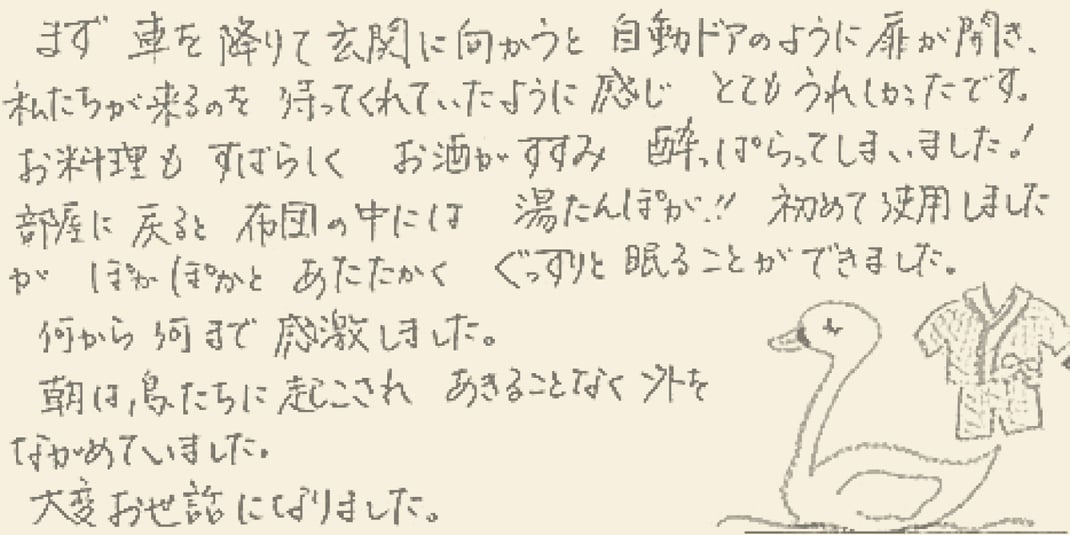 まず 車を降りて玄関に向かうと 自動ドアのように扉が開き、
私たちが来るのを 待ってくれていたように感じ とてもうれしかったです。
お料理も すばらしく お酒がすすみ 酔っぱらってしまいました!
部屋に戻ると 布団の中には 湯たんぽが!! 初めて使用しました
が ぽかぽかと あたたかく ぐっすりと眠ることができました。
何から何まで 感激しました。
朝は、鳥たちに起こされ あきることなく 外を
ながめていました。
大変お世話になりました。